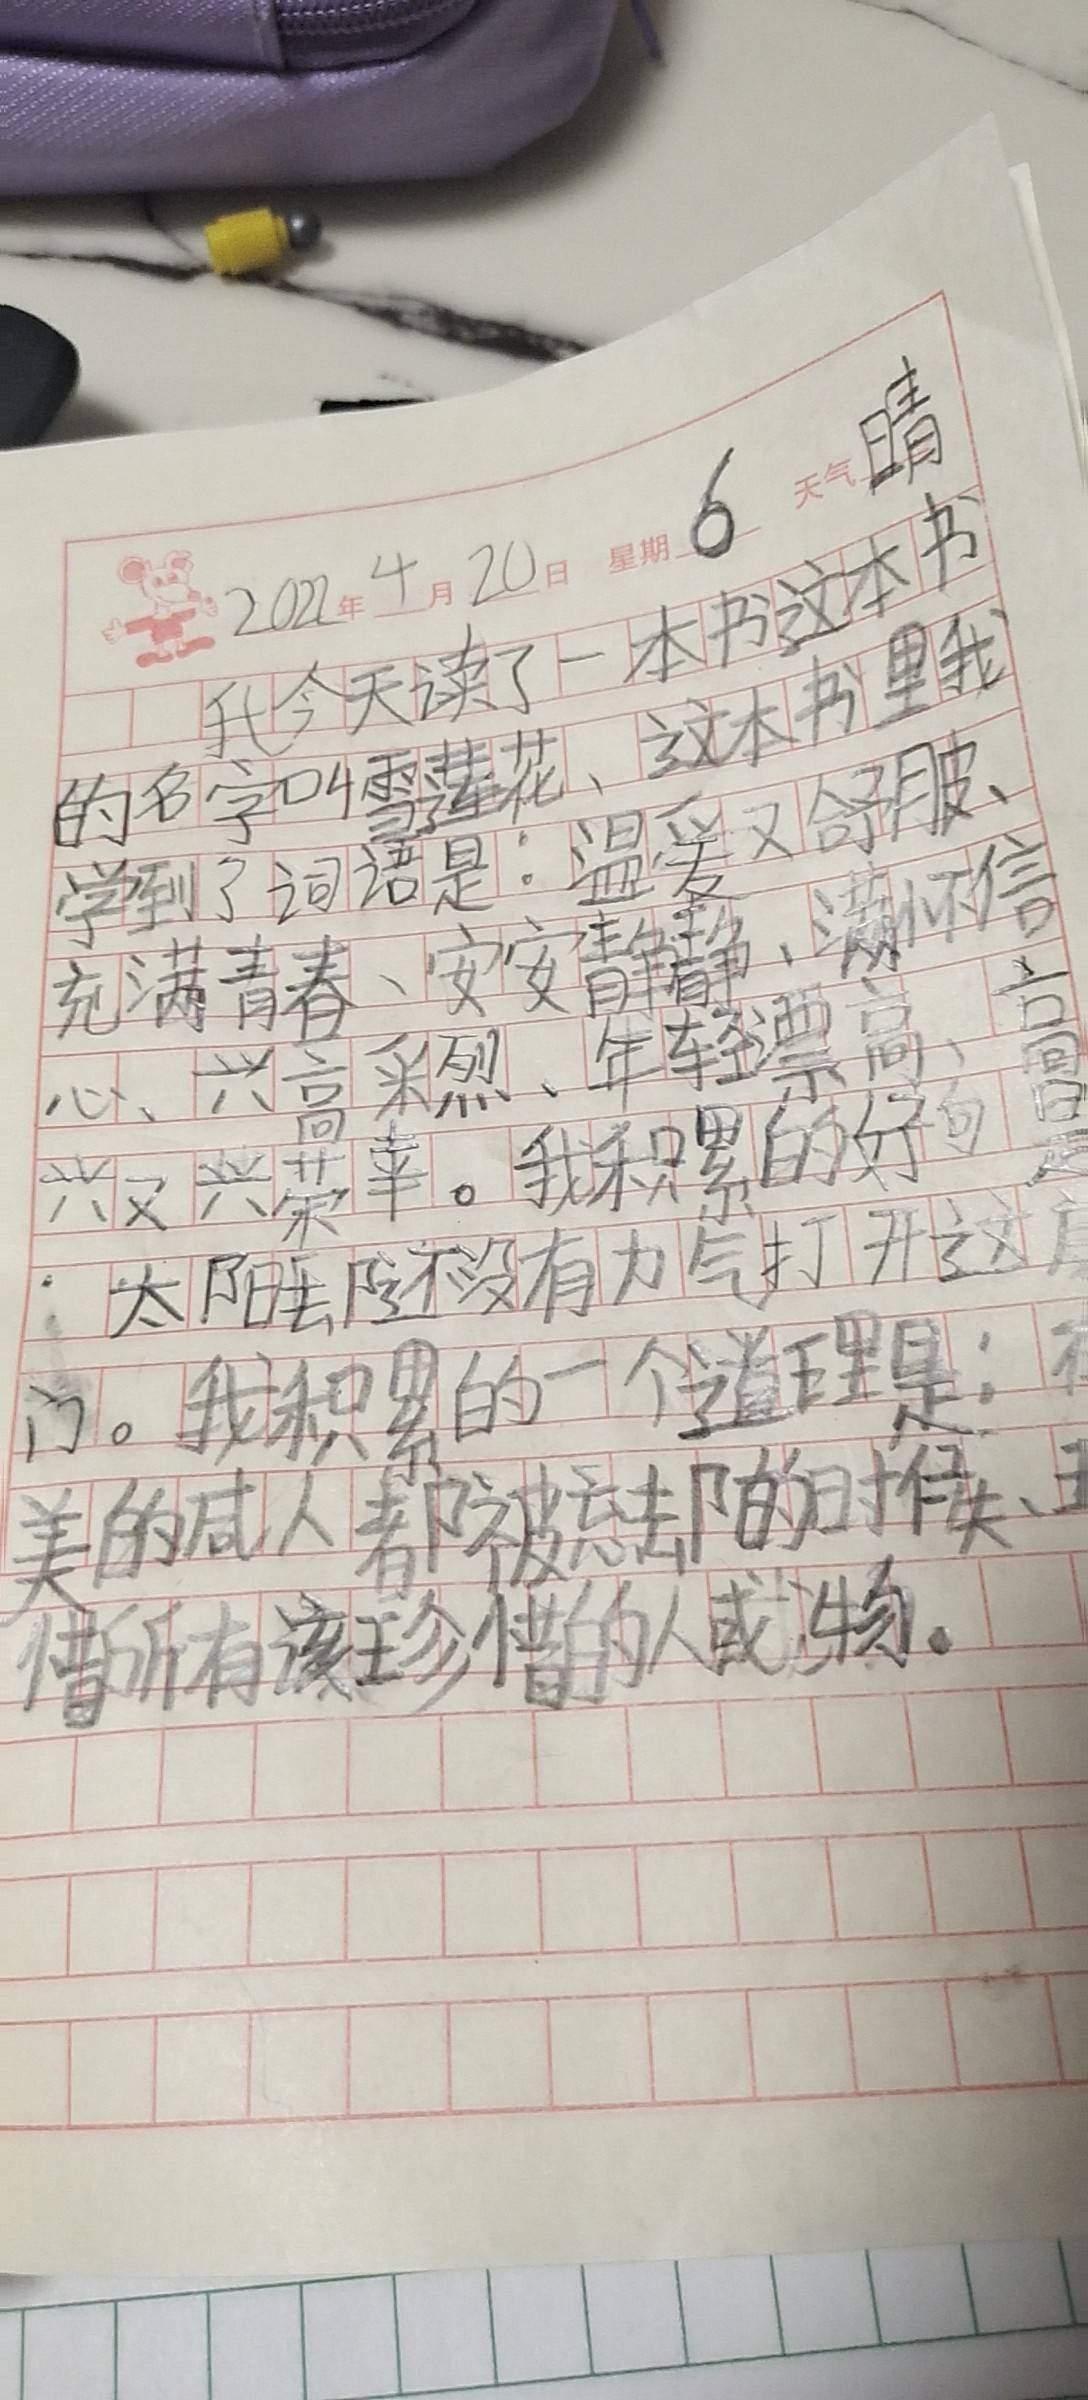 2022年4月20日 星期6 天气晴
我今天读了一本书这本书
的名字叫雪莲花、这本书里我
学到了词语是:温爱又舒服、
充满青春、安安静静、满怀信
心、兴高采烈、年轻漂高、高
兴又兴荣幸。我积累的好句
:太阳还没有力气打开这
门。我积累的一个道理是:
美的咸人都被忘却的时候、
惜所有该珍惜的人或物。